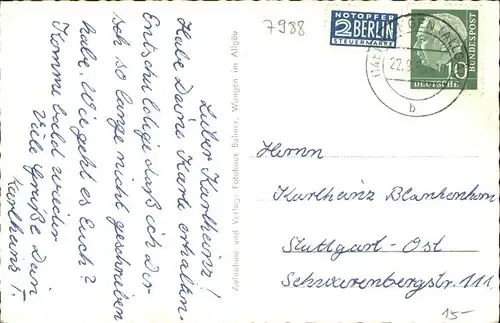 Lieber Karlheinz!
Habe Deine Karte erhalten.
Entschuldige daß ich Dir
sch so lange nicht geschrieben
habe. Wie geht es Euch?
Komme bald wieder
Viele Grüße Dein
Karlheinz
Aufnahme und Verlag: Fotohaus Wangen im Allgäu
7988
NOTOPFER
2 BERLIN
STEUERMARKE
22.9
b
DEUTSCHE
BUNDESPOST
10
Herrn
Karlheinz Blankenhorn
Stuttgart-Ost
Schwarenbergstr. 111
15-